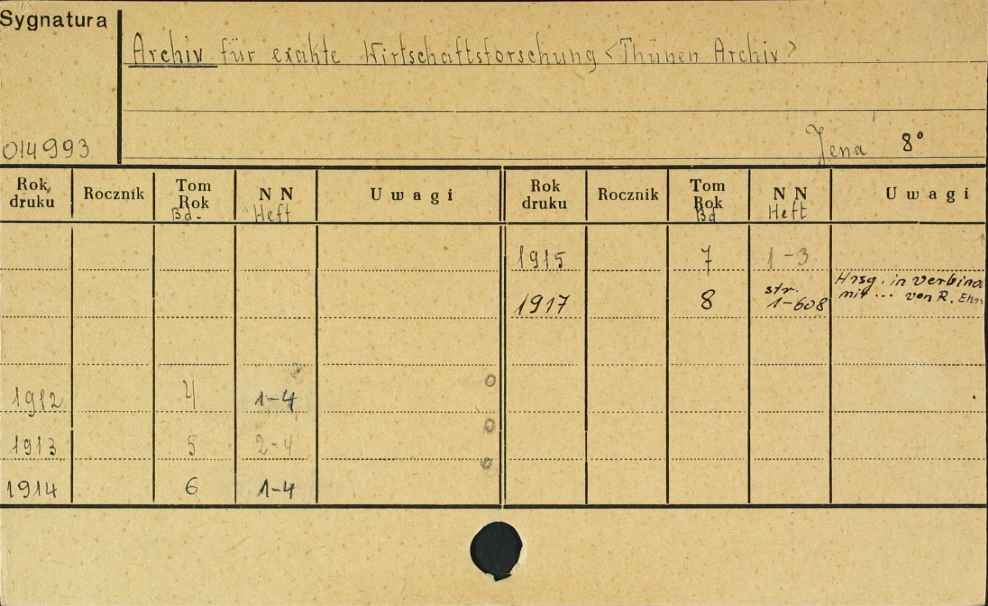 Sygnatura
Archiv für exakte Wirtschaftsforschung <Thünen Archiv>
014993
Jena 8°
Rok druku Rocznik Tom Rok Bd. NN Heft Uwagi Rok druku Rocznik Tom Rok Bd NN Heft Uwagi
1915 7 1-3
1917 8 str. 1-608 Hrsg. in Verbind mit ... von R. Ehr
1912 4 1-4
1913 5 2-4
1914 6 1-4